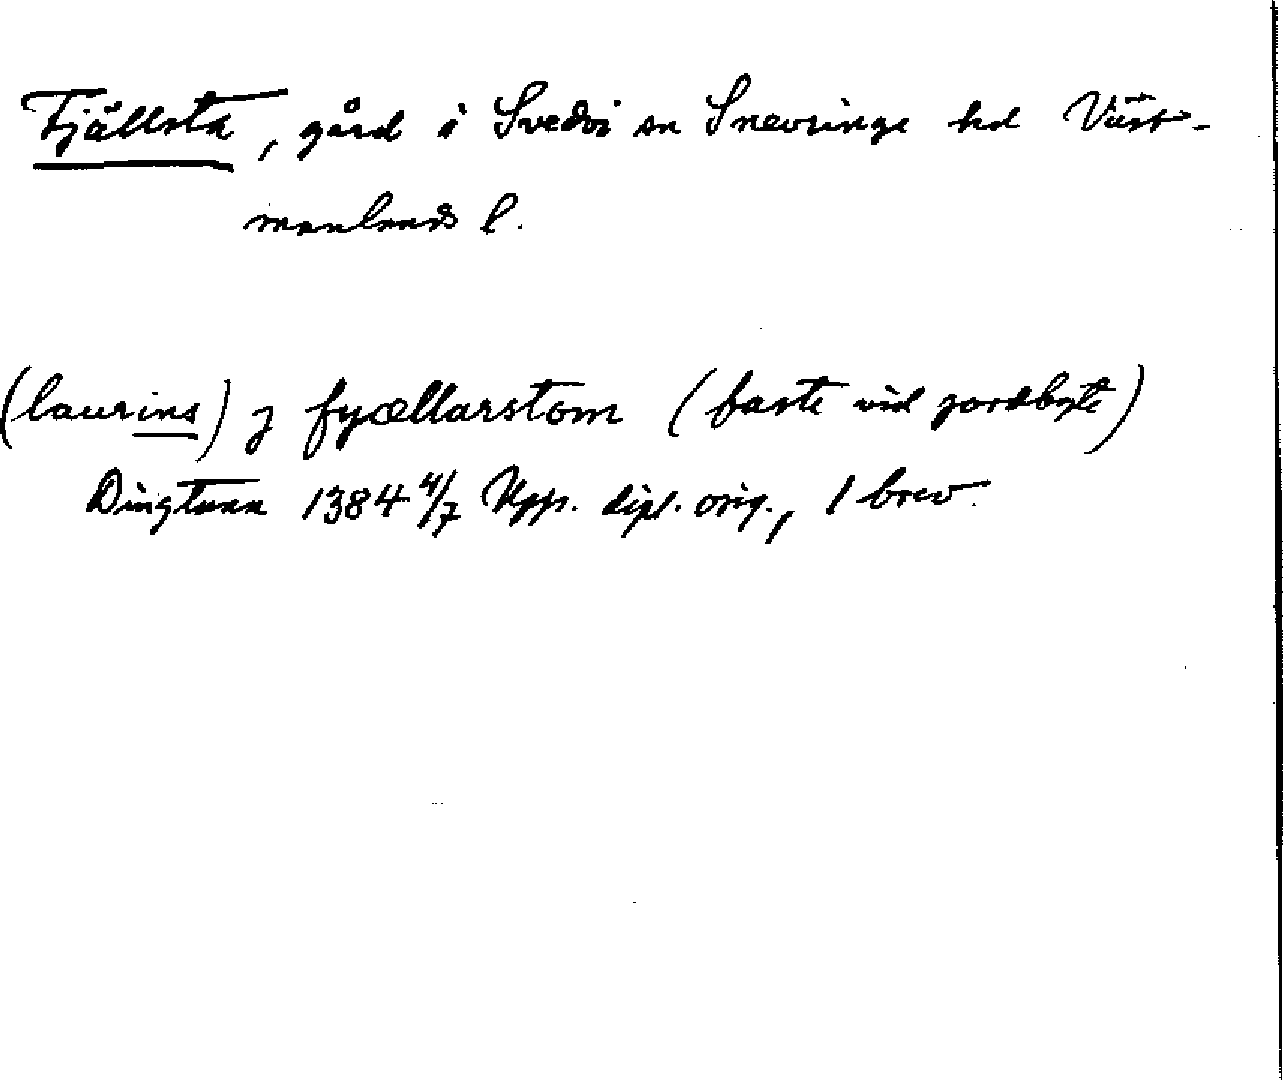 Fjällsta, gård i Svedvi sn Snevringe hd Väst-
manlands l.
(laurins) j fyællarstom (faste vid jordbyte)
Dingtuna 1384 4/7 Upps. dipl. orig., 1 brev.